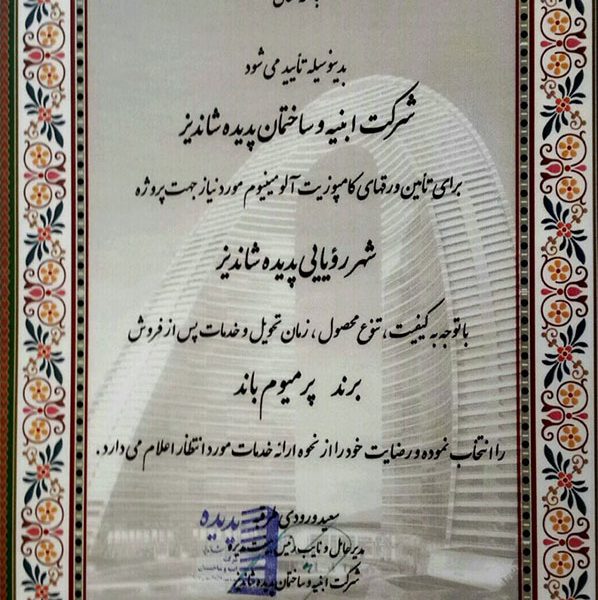 بدینوسیله تأیید می شود
شرکت ابنیه و ساختمان پدیده شاندیز
برای تأمین ورقهای کامپوزیت آلومینیوم مورد نیاز جهت پروژه
شهر رؤیایی پدیده شاندیز
با توجه به کیفیت، تنوع محصول، زمان تحویل و خدمات پس از فروش
برند پرمیوم باند
را انتخاب نموده و رضایت خود را از نحوه ارائه خدمات مورد انتظار اعلام می دارد.
سعید ورودی
پدیده
مدیرعامل و نایب رئیس هیئت مدیره
شرکت ابنیه و ساختمان پدیده شاندیز